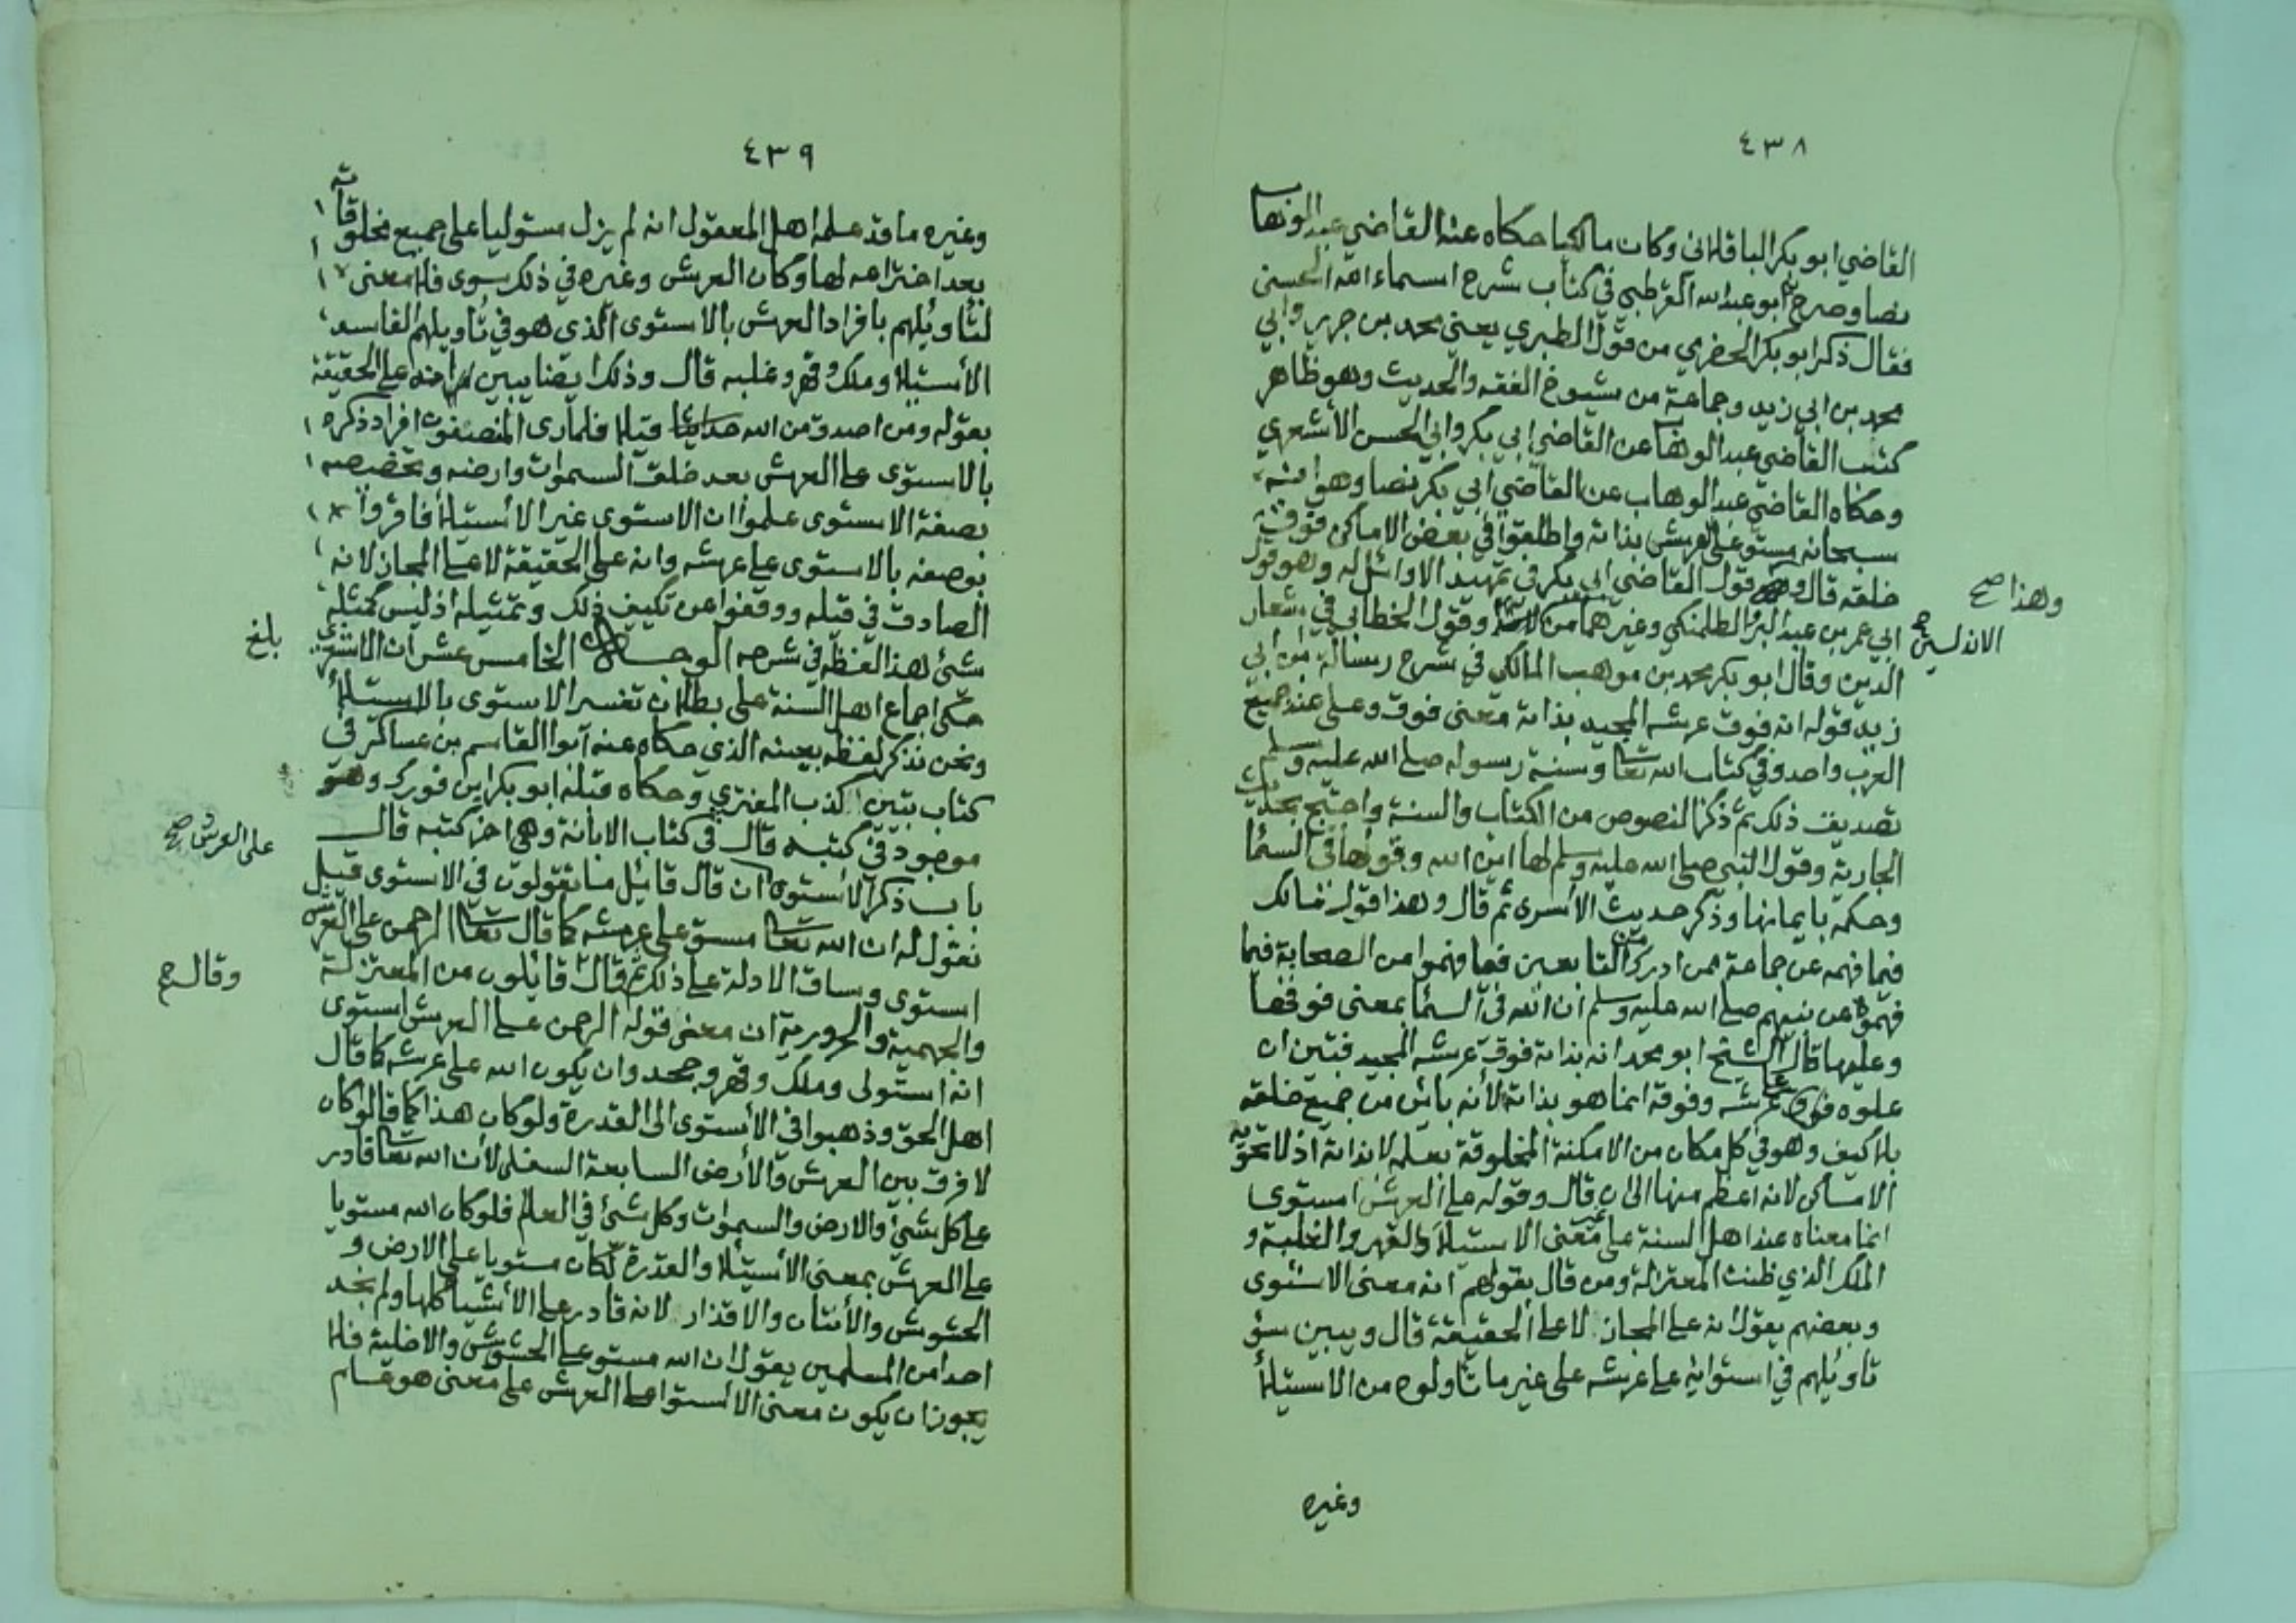 ٤٣٨
القاضي ابو بكر الباقلاني وكان مالكيا حكاه عنه القاضي عبد الوهاب
نصا وصرح به ابو عبد الله القرطبي في كتاب شرح اسماء الله الحسنى
فقال ذكر ابو بكر الحضرمي من قول الطبري يعني محمد بن جرير وابي
محمد بن ابي زيد وجماعة من شيوخ الفقه والحديث وهو ظاهر
كتب القاضي عبد الوهاب عن القاضي ابي بكر وابي الحسن الأشعري
وحكاه القاضي عبد الوهاب عن القاضي ابي بكر نصا وهو انه
سبحانه مستو على العرش بذاته واطلقوا في بعض الاماكن فوق
خلقه قال وهذا صح قول القاضي ابي بكر في تمهيد الاوائل له وهو قول
ابي عمر بن عبد البر والطلمنكي وغيرهما من الاندلسيين صح وقول الخطابي في شعار
الدين وقال ابو بكر محمد بن موهب المالكي في شرح رسالة بن ابي
زيد قوله انه فوق عرشه المجيد بذاته معنى فوق وعلى عند جميع
العرب واحد وفي كتاب الله تعا وسنة رسوله صلى الله عليه وسلم
تصديق ذلك ثم ذكر النصوص من الكتاب والسنة واحتج بحديث
الجارية وقول النبي صلى الله عليه وسلم لها اين الله وقولها في السما
وحكمه بايمانها وذكر حديث الأسرى ثم قال وهذا قول مالك
فيما فهمه عن جماعة ممن ادرك من التابعين فيما فهموا من الصحابة فيما
فهموه عن نبيهم صلى الله عليه وسلم ان الله في السما بمعنى فوقها
وعليها قال الشيخ ابو محمد انه بذاته فوق عرشه المجيد فتبين ان
علوه على عرشه وفوقه انما هو بذاته لأنه بائن من جميع خلقه
بلا كيف وهو في كل مكان من الامكنة المخلوقة بعلمه لا بذاته اذ لا تحويه
الاماكن لانه اعظم منها الى ان قال وقوله على العرش استوى
انما معناه عند اهل السنة على غير معنى الاستيلاء والقهر والغلبة و
الملك الذي ظنت المعتزلة ومن قال بقولهم انه معنى الاستوى
وبعضهم يقول انه على المجاز لا على الحقيقة قال ويبين سؤ
تاويلهم في استوائه على عرشه على غير ما تاولوه من الاستيلأ
وغيره
٤٣٩
وغيره ما قد علمه اهل المعقول انه لم يزل مستوليا على جميع مخلوقاته
بعد اختراعه لها وكان العرش وغيره في ذلك سوى فلا معنى
لتأويلهم بافراد العرش بالاستوى الذي هو في تأويلهم الفاسد
الأستيلا وملك وقهر وغلبه قال وذلك ايضا يبين انه على الحقيقة
بقوله ومن اصدق من الله حديثا قيلا فلما رى المنصفون افراد ذكره
بالاستوى على العرش بعد خلق السموات وارضه وتخصيصه
بصفة الاستوى علموا ان الاستوى غير الأستيلأ فاقروا
بوصفه بالاستوى على عرشه وانه على الحقيقة لا على المجاز لانه
الصادق في قيله ووقفوا عن تكييف ذلك وتمثيله اذ ليس كمثله
شئ هذا لفظه في شرحه الوجه الخامس عشر ان الاشعري
بلغ
حكى اجماع اهل السنة على بطلان تفسير الاستوى بالاستيلأ
ونحن نذكر لفظه بعينه الذي حكاه عنه ابوا القاسم بن عساكر في
كتاب تبيين كذب المفتري وحكاه قبله ابو بكر ابن فورك وهو
موجود في كتبه قال في كتاب الابانة وهي اخر كتبه قال
باب ذكر الأستوى على العرش صح ان قال قائل ما تقولون في الاستوى قيل
نقول له ان الله تعا مستو على عرشه كما قال تعا الرحمن على العرش
استوى وساق الادلة على ذلك ثم قال وقال صح قائلون من المعتزلة
والجهمية والحرورية ان معنى قوله الرحمن على العرش استوى
انه استولى وملك وقهر وجحدوا ان يكون الله على عرشه كما قال
اهل الحق وذهبوا في الأستوى الى القدرة ولو كان هذا كما قالوا كان
لا فرق بين العرش والأرض السابعة السفلى لأن الله تعا قادر
على كل شئ والارض والسموات وكل شئ في العالم فلو كان الله مستويا
على العرش بمعنى الأستيلا والقدرة لكان مستويا على الارض و
الحشوش والأنتان والاقذار لانه قادر على الأشيا كلها ولم نجد
احدا من المسلمين يقول ان الله مستو على الحشوش والاخلية فلا
يجوز ان يكون معنى الأستوا على العرش على معنى هو عام